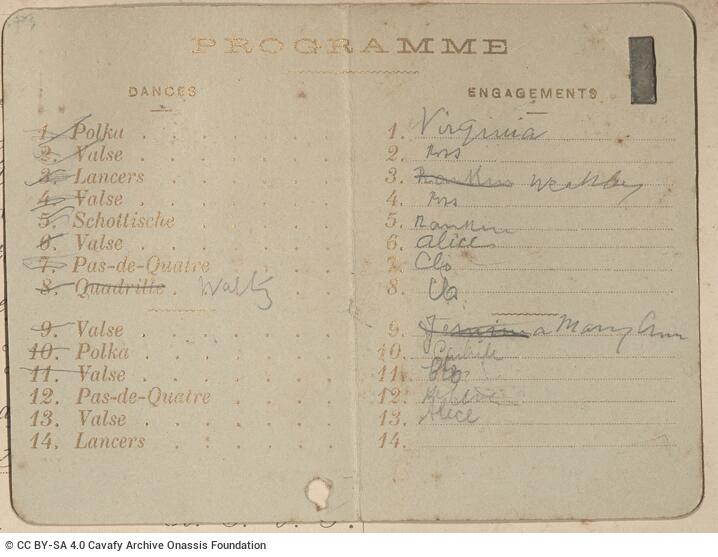 PROGRAMME
DANCES
1. Polka
2. Valse
3. Lancers
4. Valse
5. Schottische
6. Valse
7. Pas-de-Quatre
8. Quadrille Waltz
9. Valse
10. Polka
11. Valse
12. Pas-de-Quatre
13. Valse
14. Lancers
ENGAGEMENTS
1. Virginia
2. Ross
3. Rankin
4. Ross
5. Rankin
6. Alice
7. Clo
8. Clo
9. Mary Ann
10.
11. Clo
12.
13. Alice
14.
© CC BY-SA 4.0 Cavafy Archive Onassis Foundation